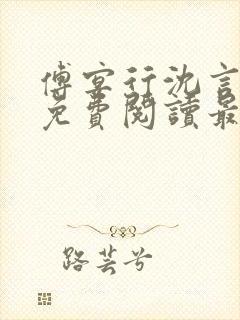 傅宴行沈言
免費閱讀最
路芸兮